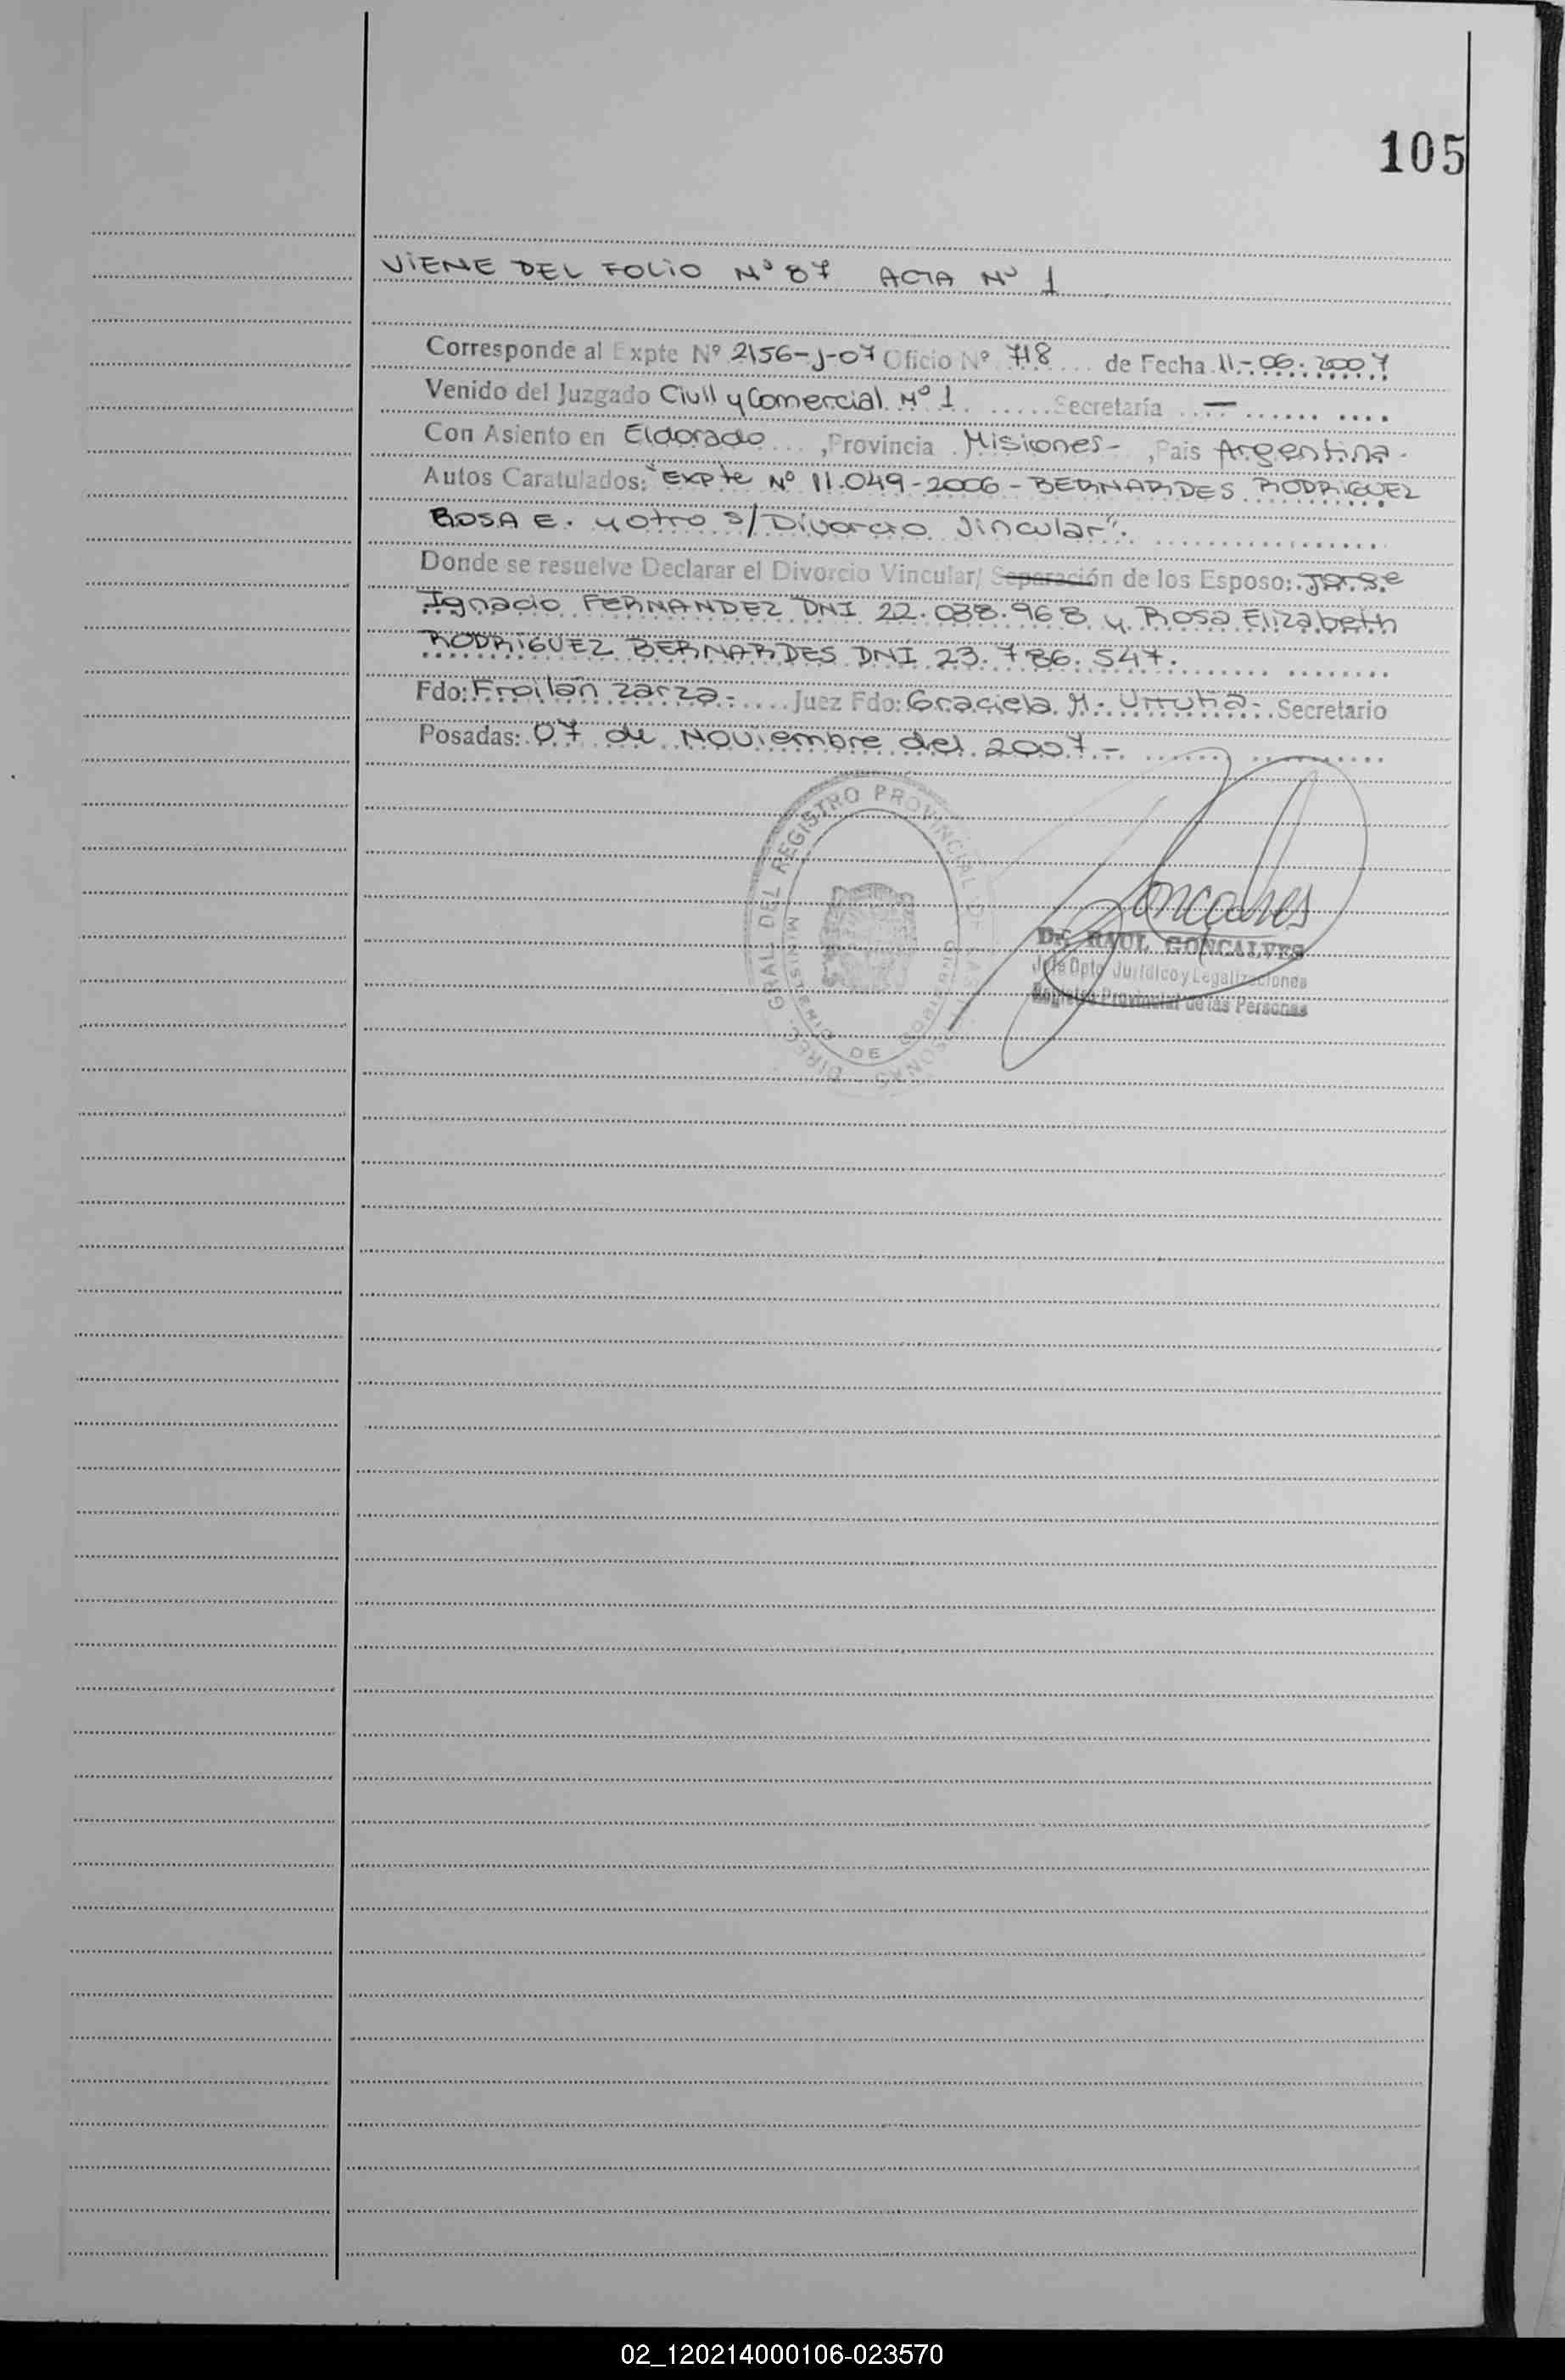 105
VIENE DEL FOLIO Nº 87 ACTA Nº 1
Corresponde al Expte Nº 2156-J-07 Oficio Nº 718 de Fecha 11-06-2007
Venido del Juzgado Civil y Comercial Nº 1 Secretaría —
Con Asiento en Eldorado, Provincia Misiones-, Pais Argentina.
Autos Caratulados: "Expte Nº 11.049-2006 - BERNARDES RODRIGUEZ
ROSA E. y otro s/ Divorcio Vincular".
Donde se resuelve Declarar el Divorcio Vincular/ Separación de los Esposo: Jorge
Ignacio FERNANDEZ DNI 22.038.968 y Rosa Elizabeth
RODRIGUEZ BERNARDES DNI 23.786.547.
Fdo: Froilán Zarza- Juez Fdo: Graciela M. Urrutia- Secretario
Posadas: 07 de Noviembre del 2007-
DIREC. GRAL. DEL REGISTRO PROVINCIAL DE LAS PERSONAS
MINISTERIO DE GOBIERNO
Goncalves
Dr. RAUL GONCALVES
Jefe Dpto. Jurídico y Legalizaciones
Registro Provincial de las Personas
02_120214000106-023570